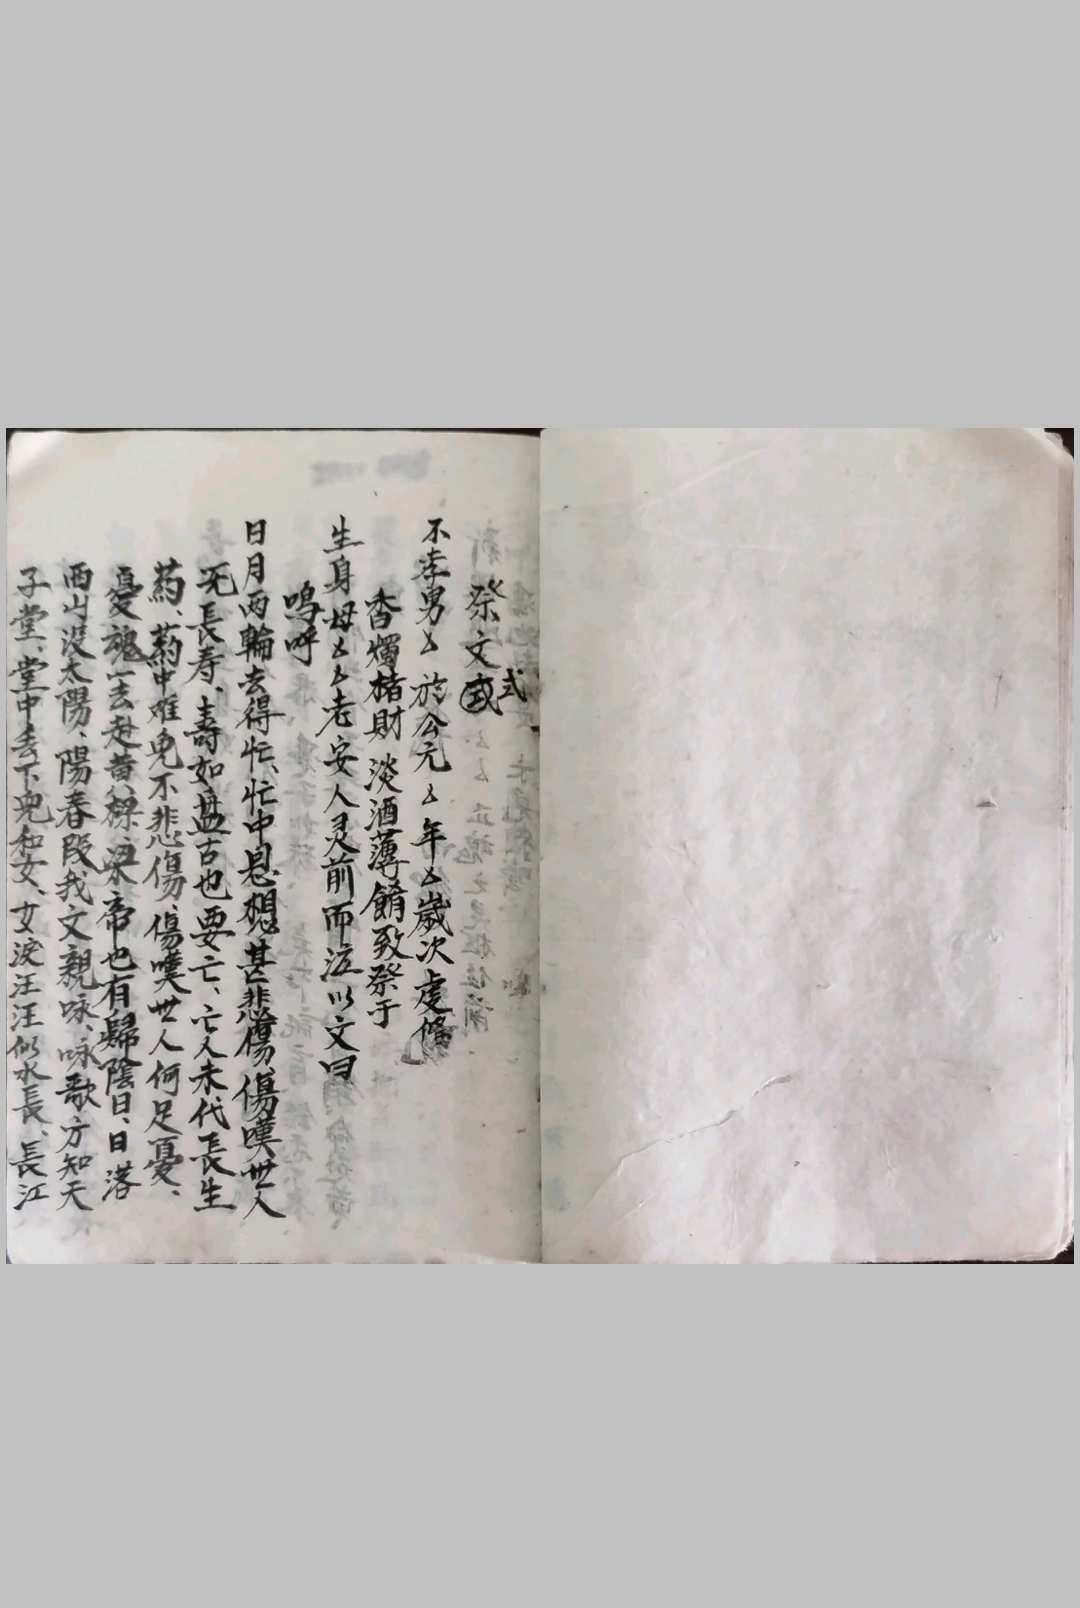 祭文式
不孝男厶 於公元厶年厶歲次虔備
香燭楮財淡酒薄餚致祭于
生身母厶厶老安人灵前而泣以文曰
嗚呼
日月两輪去得忙、忙中思想甚悲傷、傷嘆世人
死長寿、壽如盘古也要亡、亡人未代長生
葯、葯中难免不悲傷、傷嘆世人何足憂、
憂魂一去赴黄粱、梁帝也有歸陰日、日落
西山没太陽、陽春段我文親咏、咏歌方知天
子堂、堂中丢下児和女、女淚汪汪似水長、長江